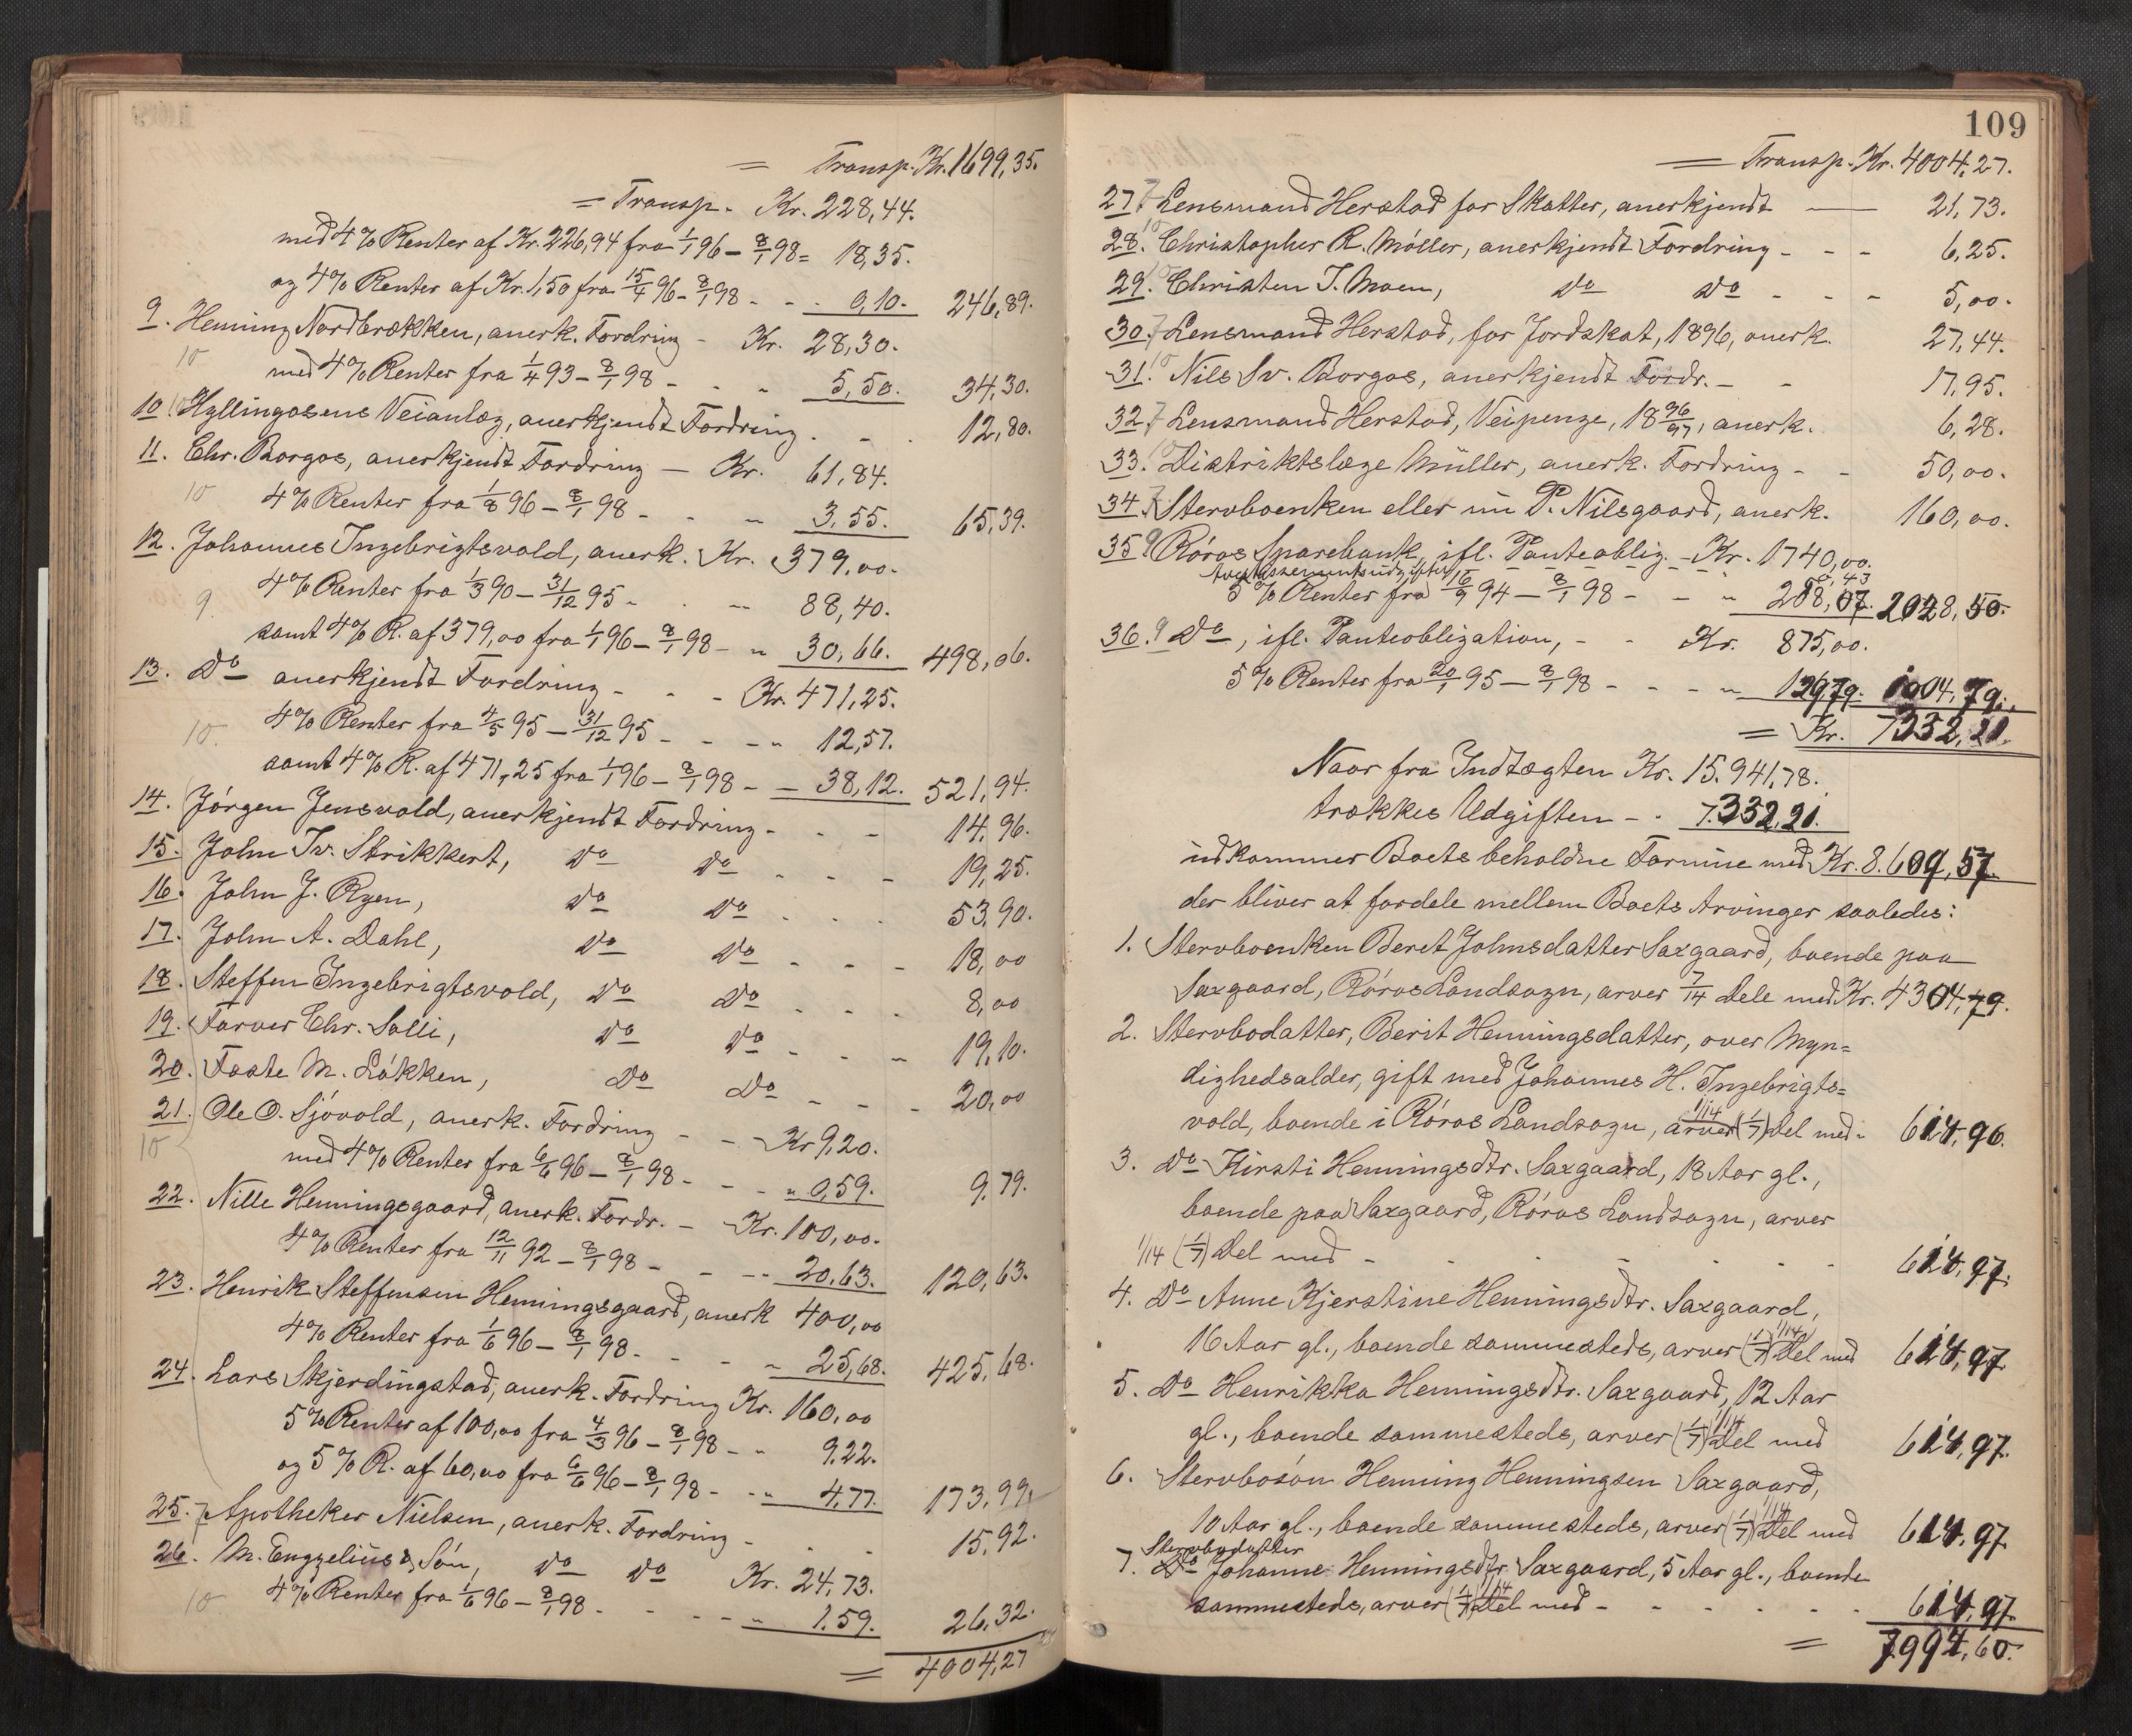 = Transp. Kr. 1699,35.
= Transp. Kr. 228,44.
med 4% Renter af Kr. 226,94 fra 1/1 96 – 8/1 98 = 18,35.
og 4% Renter af Kr. 1,50 fra 15/4 96 – 8/1 98 - - - 0,10. 246,89.
9. Henning Nordbrækken, anerk. Fordring - Kr. 28,30.
10 med 4% Renter fra 1/4 93 – 8/1 98 - - - 5,50. 34,30.
10 10 Hyllingosens Veianlæg, anerkjendt Fordring . - . 12,80.
11. Chr. Borgos, anerkjendt Fordring — Kr. 61,84.
10 4% Renter fra 1/8 96 – 8/1 98 - - " 3,55. 65,39.
12. Johannes Ingebrigtsvold, anerk. Kr. 379,00.
4% Renter fra 1/3 90 – 31/12 95 - . " 88,40.
9. samt 4% R. af 379,00 fra 1/1 96 – 8/1 98 - " 30,66. 498,06.
13. Do anerkjendt Fordring - - - Kr. 471,25.
10. 4% Renter fra 4/5 95 – 31/12 95 - - - " 12,57.
samt 4% R. af 471,25 fra 1/1 96 – 8/1 98 - - 38,12. 521,94.
14. Jørgen Jensvold, anerkjendt Fordring - - - 14,96.
15. John Iv. Strikkert, Do Do - - - 19,25.
16. John J. Ryen, Do Do . . . 53,90.
17. John A. Dahl, Do Do - - - 18,00
18. Steffen Ingebrigtsvold, Do Do . . . 8,00
19. Farver Chr. Solli, Do Do - - - 19,10.
20. Faste M. Løkken, Do Do - - - 20,00
21. Ole O. Sjøvold, anerk. Fordring - - Kr 9,20.
10 med 4% Renter fra 6/6 96 – 8/1 98 - - - " 0,59. 9,79.
22. Nille Henningsgaard, anerk. Fordr. - Kr. 100,00.
4% Renter fra 12/11 92 – 8/1 98 - - - - 20,63. 120,63.
23. Henrik Steffensen Henningsgaard, anerk 400,00
4% Renter fra 1/6 96 – 8/1 98 - - - " 25,68. 425,68.
24. Lars Skjerdingstad, anerk. Fordring Kr. 160,00
5% Renter af 100,00 fra 4/3 96 – 8/1 98 - " 9,22.
og 5% R. af 60,00 fra 6/6 96 – 8/1 98 - - " 4,77. 173,99.
25. 7 Apotheker Nielsen, anerk. Fordring - - - 15,92.
26. M. Engzelius & Søn, Do Do Kr. 24,73.
10 4% Renter fra 1/6 96 – 8/1 98 - - - - " 1,59. 26,32.
= 4004,27
109
= Transp. Kr. 4004,27.
27. 7 Lensmand Herstad for Skatter, anerkjendt — 21,73.
28. 10 Christopher R. Møller, anerkjendt Fordring - - - 6,25.
29. 10 Christen J. Moen, Do Do - - - 5,00.
30. 7 Lensmand Herstad, for Jordskat, 1896, anerk. 27,44.
31. 10 Nils Sv. Borgos, anerkjendt Fordr. - - 17,95.
32. 7 Lensmand Herstad, Veipenge, 18 96/97, anerk. 6,28.
33. 10 Distriktslæge Müller, anerk. Fordring - - 50,00.
34. 7 Stervboenken eller nu P. Nilsgaard, anerk. 160,00.
35 9 Røros Sparebank, ifl. Panteoblig. - Kr. 1740,00.
5% Renter fra 16/9 94 – 8/1 98 - - " 2028,50.
36. 9 Do, ifl. Panteobligation, - - Kr. 875,00.
5% Renter fra 20/1 95 – 8/1 98 - - - " 129,79. 1004,79.
= Kr. 7332,21
Naar fra Indtægten Kr. 15.941,78.
trækkes Udgiften - . 7.332,21.
udkommer Boets beholdne Formue med Kr. 8.609,57.
der bliver at fordele mellem Boets Arvinger saaledes:
1. Stervboenken Beret Johnsdatter Saxgaard, boende paa
Saxgaard, Røros Landsogn, arver 7/14 Dele med Kr. 4304,79.
2. Stervbodatter, Berit Henningsdatter, over Myn=
dighedsalder, gift med Johannes H. Ingebrigts=
vold, boende i Røros Landsogn, arver 1/14 (1/7) Del med - 614,96.
3. Do Kirsti Henningsdtr. Saxgaard, 18 Aar gl.,
boende paa Saxgaard, Røros Landsogn, arver
1/14 (1/7) Del med - - - - - - 614,97.
4. Do Anne Kjerstine Henningsdtr. Saxgaard,
16 Aar gl., boende sammesteds, arver (1/7) 1/14 Del med 614,97
5. Do Henrikka Henningsdtr. Saxgaard, 12 Aar
gl., boende sammesteds, arver (1/7) 1/14 Del med 614,97.
6. Stervbosøn Henning Henningsen Saxgaard,
10 Aar gl., boende sammesteds, arver (1/7) 1/14 Del med 614,97
Stervbodatter
7. Do Johanne Henningsdtr Saxgaard, 5 Aar gl., boende
sammesteds, arver (1/7) 1/14 Del med - - - - - 614,97
= 7994,60.